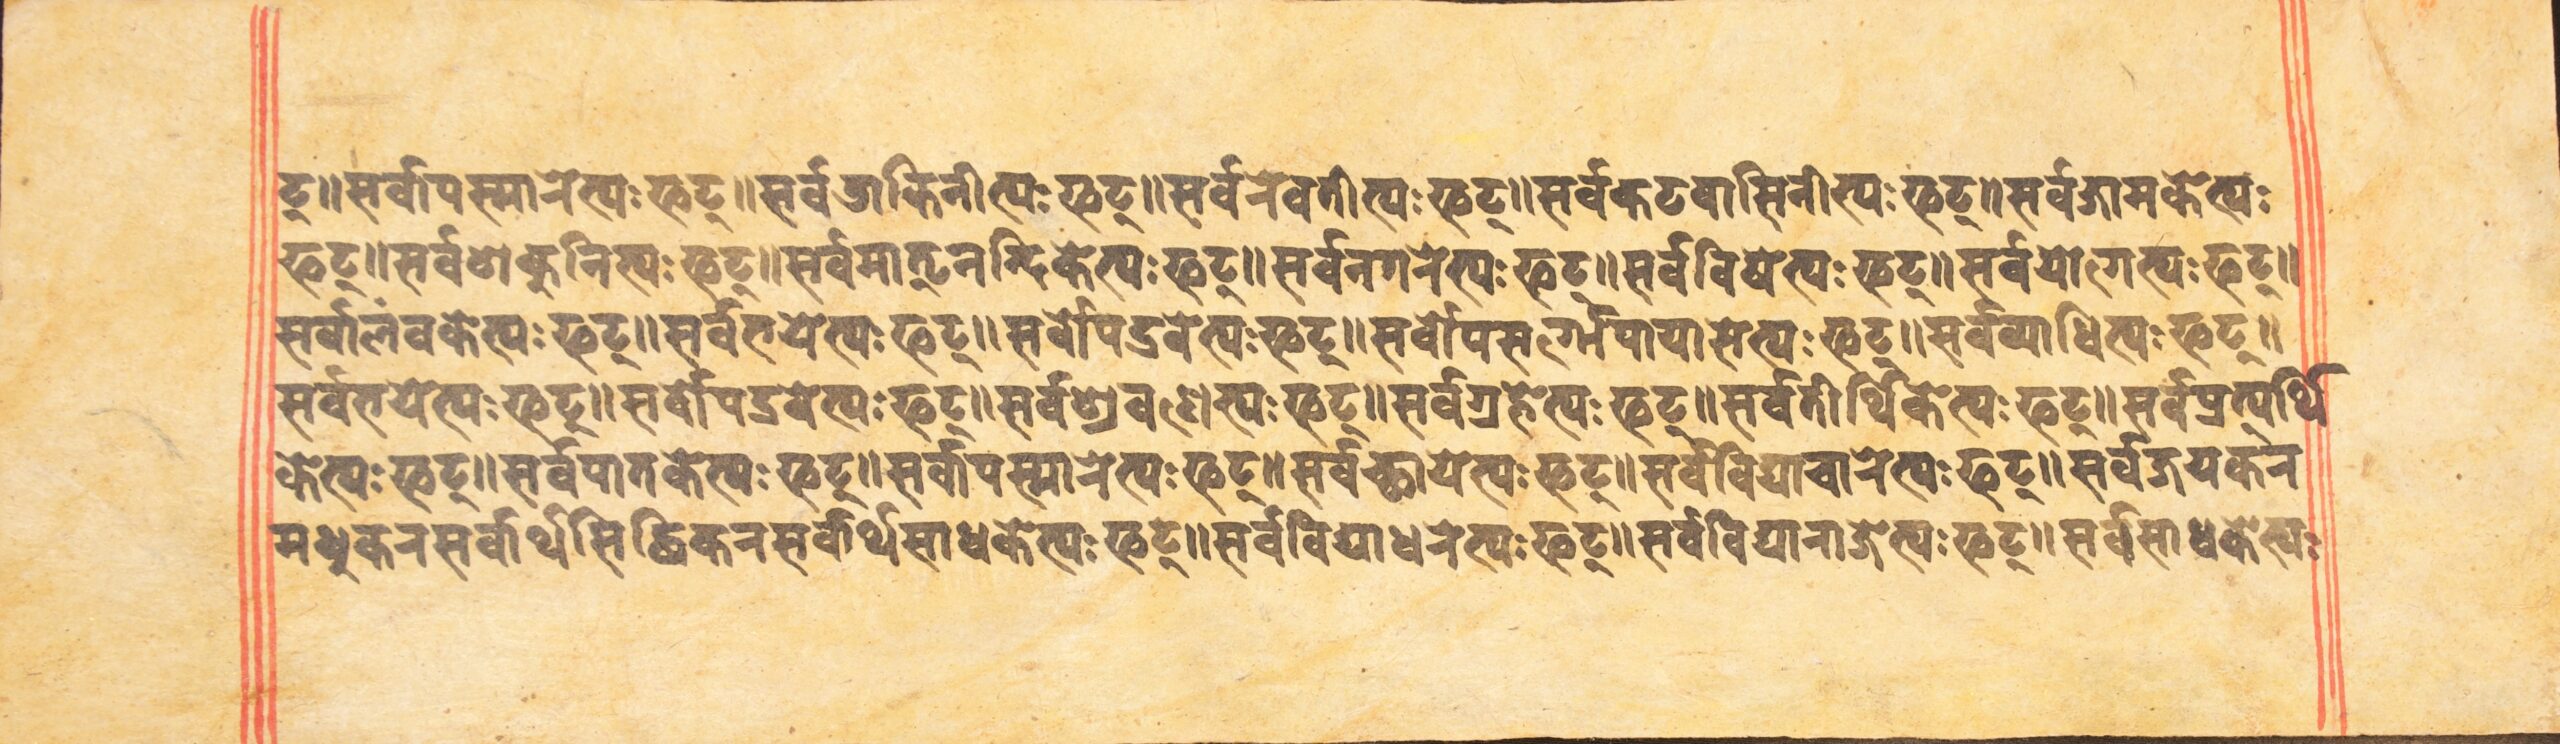 ट्॥सर्वापस्मारेभ्यः फट्॥सर्वडाकिनीभ्यः फट्॥सर्वरेवतीभ्यः फट्॥सर्वकटवासिनीभ्यः फट्॥सर्वजामकेभ्यः
फट्॥सर्वशकुनिभ्यः फट्॥सर्वमातृनन्दिकेभ्यः फट्॥सर्वनगरेभ्यः फट्॥सर्वविषेभ्यः फट्॥सर्वयोगेभ्यः फट्॥
सर्वालंवकेभ्यः फट्॥सर्वभयेभ्यः फट्॥सर्वोपद्रवेभ्यः फट्॥सर्वोपसर्गोपायासेभ्यः फट्॥सर्वव्याधिभ्यः फट्॥
सर्वभयेभ्यः फट्॥सर्वोपद्रवेभ्यः फट्॥सर्वश्रवणेभ्यः फट्॥सर्वग्रहेभ्यः फट्॥सर्वतीर्थिकेभ्यः फट्॥सर्वप्रत्यर्थि
केभ्यः फट्॥सर्वपातकेभ्यः फट्॥सर्वापस्मारेभ्यः फट्॥सर्वच्छायेभ्यः फट्॥सर्वविद्याचारेभ्यः फट्॥सर्वजयकर
मधुकरसर्वार्थसिद्धिकरसर्वार्थसाधकेभ्यः फट्॥सर्वविद्याधरेभ्यः फट्॥सर्वविद्याराजेभ्यः फट्॥सर्वसाधकेभ्यः